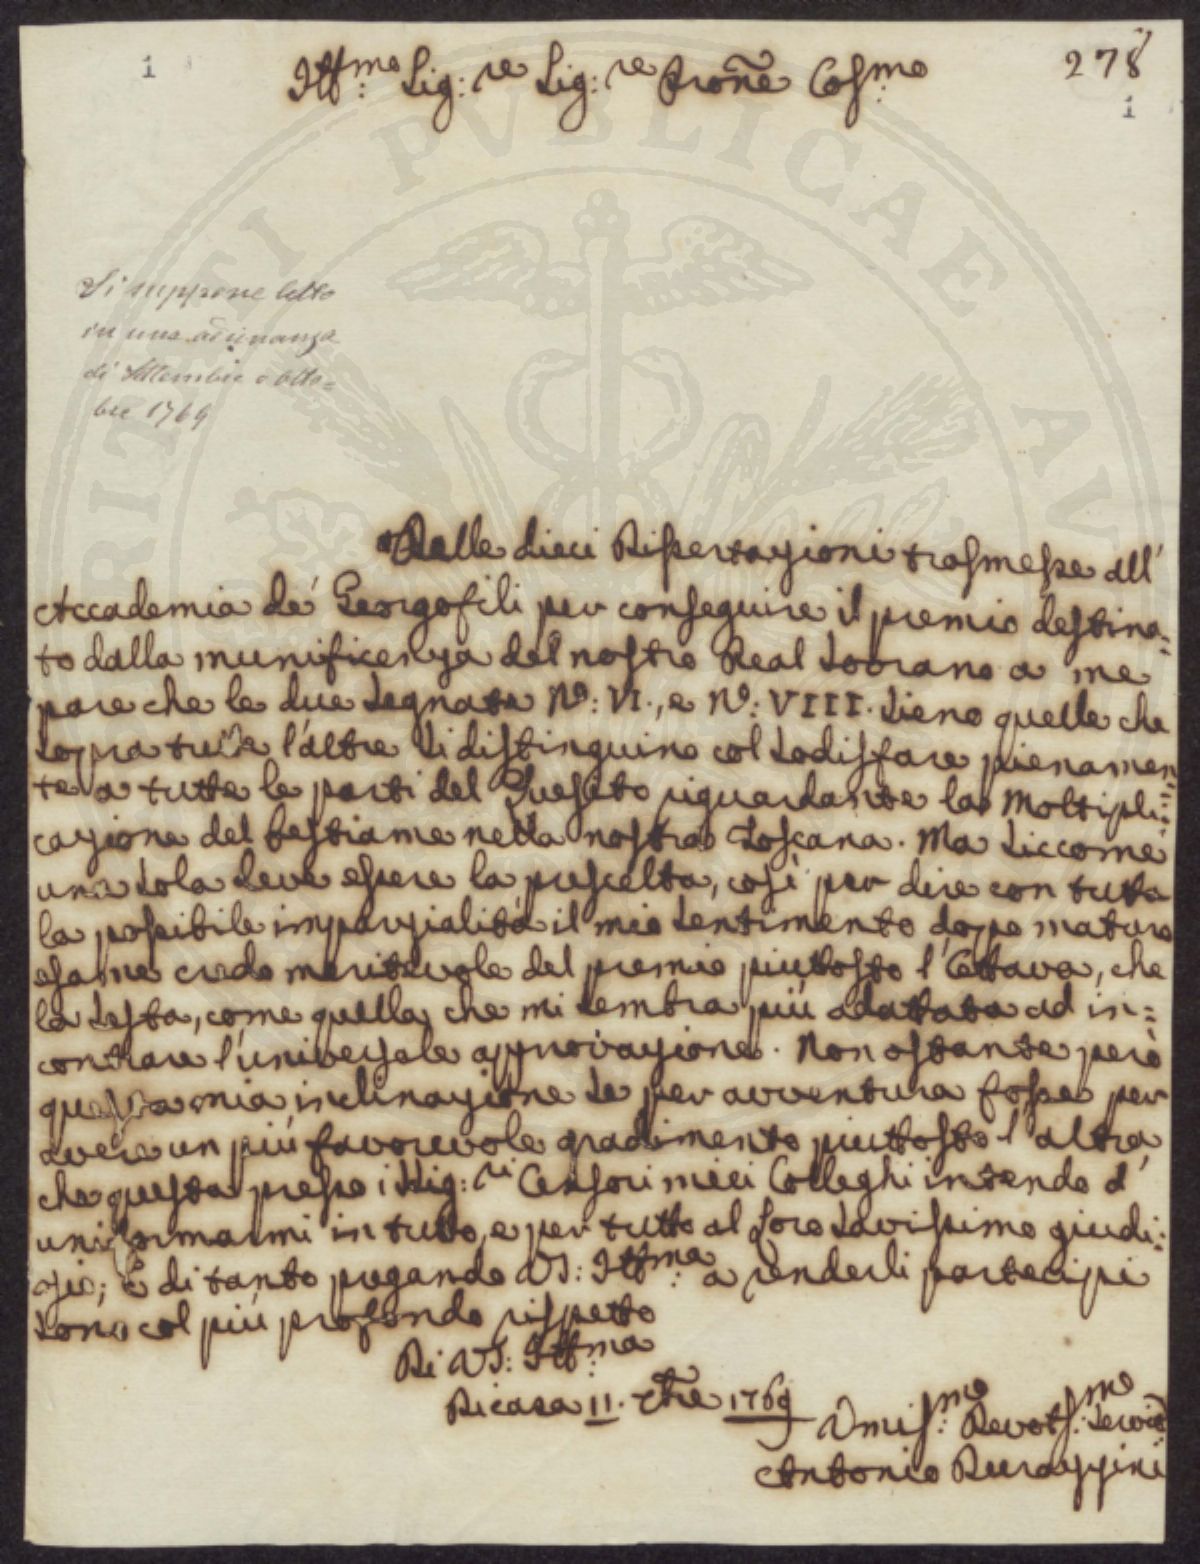 1
278
1
Ill:mo Sig:re Sig:re Prone Cos:mo
Si suppone letto
in una adunanza
di Settembre o Otto=
bre 1769
Delle dieci Dissertazioni trasmesse all'
Accademia de' Georgofili per conseguire il premio destina=
to dalla munificenza del nostro Real Sovrano a me
pare che le due segnate N.º: VI., e N.º: VIII. sieno quelle che
sopra tutte l'altre si distinguino col sodisfare pienamen=
te a tutte le parti del Quesito riguardante la Moltipli=
cazione del bestiame nella nostra Toscana. Ma siccome
una sola deve essere la prescelta, così per dire con tutta
la possibile imparzialità il mio sentimento doppo maturo
esame credo meritevole del premio piuttosto l'Ottava, che
la Sesta, come quella, che mi sembra più adattata ad in=
contrare l'universale approvazione. Non ostante però
questa mia inclinazione se per avventura fosse per
avere un più favorevole gradimento piuttosto l'altra,
che questa presso i Sig:ri Censori miei Colleghi intendo d'
uniformarmi in tutto, e per tutto al loro savissimo giudi=
zio; E di tanto pregando VS: Ill:ma a renderli partecipi
sono col più profondo rispetto
Di VS: Ill:ma
Di casa 11. 7bre 1769
Umis:mo Devots:mo Servie
Antonio Durazzini